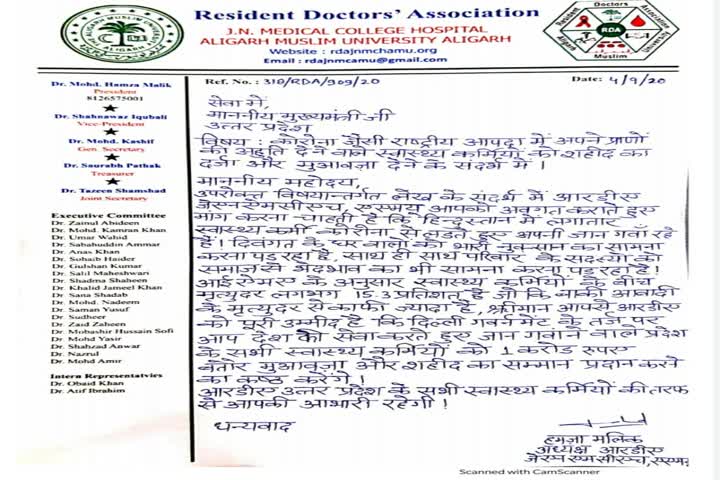 Resident Doctors' Association
J.N. MEDICAL COLLEGE HOSPITAL
ALIGARH MUSLIM UNIVERSITY ALIGARH
Website : rdajnmchamu.org
Email : rdajnmcamu@gmail.com
Resident Doctors Association
Aligarh Muslim University
RDA
Dr. Mohd. Hamza Malik
President
8126575001
Dr. Shahnawaz Iqubali
Vice-President
Dr. Mohd. Kashif
Gen. Secretary
Dr. Sourabh Pathak
Treasurer
Dr. Tazeen Shamshad
Joint Secretary
Executive Committee
Dr. Zainul Abideen
Dr. Mohd. Kamran Khan
Dr. Umar Wahid
Dr. Sabahuddin Ammar
Dr. Anas Khan
Dr. Sohaib Haider
Dr. Gulshan Kumar
Dr. Salil Maheshwari
Dr. Shadma Shaheen
Dr. Khalid Jameel Khan
Dr. Sana Shadab
Dr. Mohd. Nadeem
Dr. Saman Yusuf
Dr. Sudheer
Dr. Zaid Zaheen
Dr. Mobashir Hussain Sofi
Dr. Mohd Yasir
Dr. Shahzad Anwar
Dr. Nazrul
Dr. Mohd Amir
Intern Representatvies
Dr. Obaid Khan
Dr. Atif Ibrahim
Ref. No. : 318/RDA/909/20 Date: 4/9/20
सेवा में,
माननीय मुख्यमंत्री जी
उत्तर प्रदेश
विषय : कोरोना जैसी राष्ट्रीय आपदा में अपने प्राणों
की अहुति देने वाले स्वास्थ्य कर्मियों को शहीद का
दर्जा और मुआवज़ा देने के संदर्भ में।
माननीय महोदय,
उपरोक्त विषयान्तर्गत लेख के संदर्भ में आरडीए
जेएनएमसीएच, एएमयू आपको अवगत कराते हुए
मांग करना चाहती है कि हिन्दुस्तान में लगातार
स्वास्थ्य कर्मी कोरोना से लड़ते हुए अपनी जान गवाँ रहे
हैं। दिवंगत के घर वालों को भारी नुकसान का सामना
करना पड़ रहा है, साथ ही साथ परिवार के सदस्यों को
समाज से भेदभाव का भी सामना करना पड़ रहा है।
आईसीएमआर के अनुसार स्वास्थ्य कर्मियों के बीच
मृत्युदर लगभग 15.3 प्रतिशत है जो कि बाकी आबादी
के मृत्युदर से काफी ज्यादा है, श्रीमान आपसे आरडीए
को पूरी उम्मीद है कि दिल्ली गवर्नमेंट के तर्ज पर
आप देश की सेवा करते हुए जान गवाने वाले प्रदेश
के सभी स्वास्थ्य कर्मियों को 1 करोड रुपए
बतौर मुआवज़ा और शहीद का सम्मान प्रदान करने
का कष्ठ करेंगे।
आरडीए उत्तर प्रदेश के सभी स्वास्थ्य कर्मियों की तरफ
से आपकी आभारी रहेगी।
धन्यवाद
हमज़ा मलिक
अध्यक्ष आरडीए
जेएनएमसीएच, एएमयू
Scanned with CamScanner